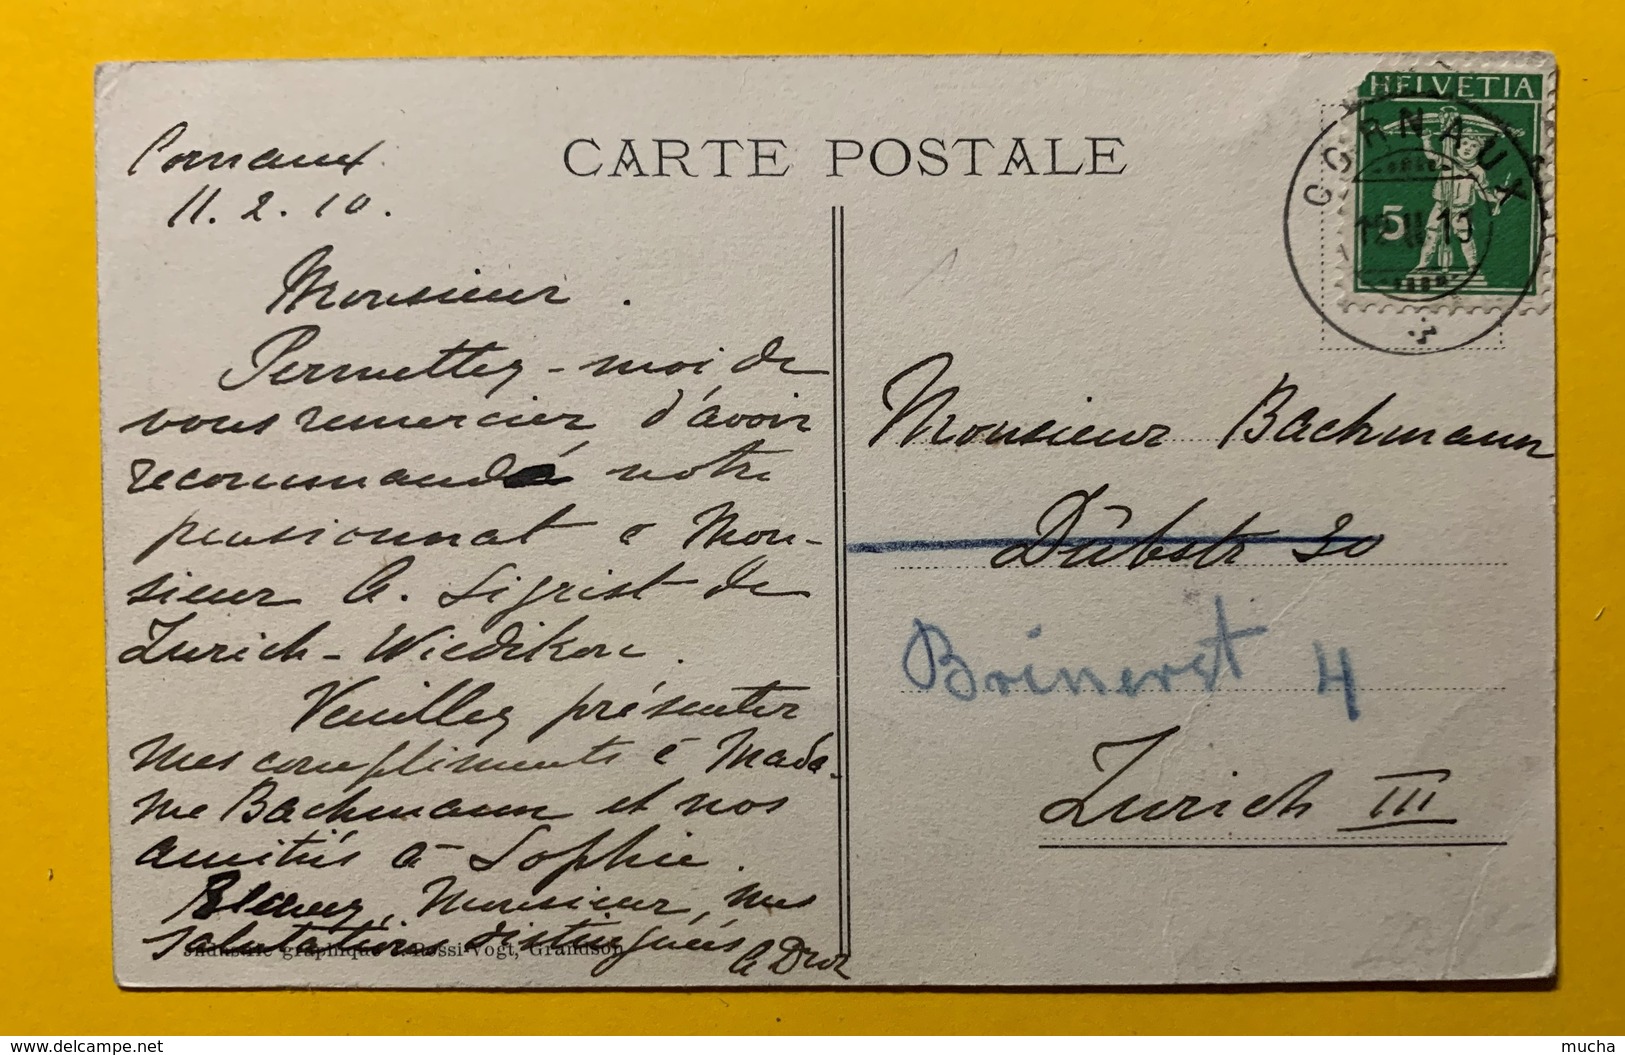 CARTE POSTALE
HELVETIA
5
CORNAUX
12 II 10
Cornaux
11. 2. 10.
Monsieur.
Permettez-moi de
vous remercier d'avoir
recommandé notre
pensionnat à Mon-
sieur A. Sigrist de
Zurich-Wiedikon.
Veuillez présenter
mes compliments à Mada-
me Bachmann et nos
amitiés à Sophie.
Monsieur, mes
salutations distinguées
A Droz
Industrie graphique Rossi-Vogt, Grandson
Monsieur Bachmann
Dübstr 30
Brinerst 4
Zurich III
www.delcampe.net
mucha